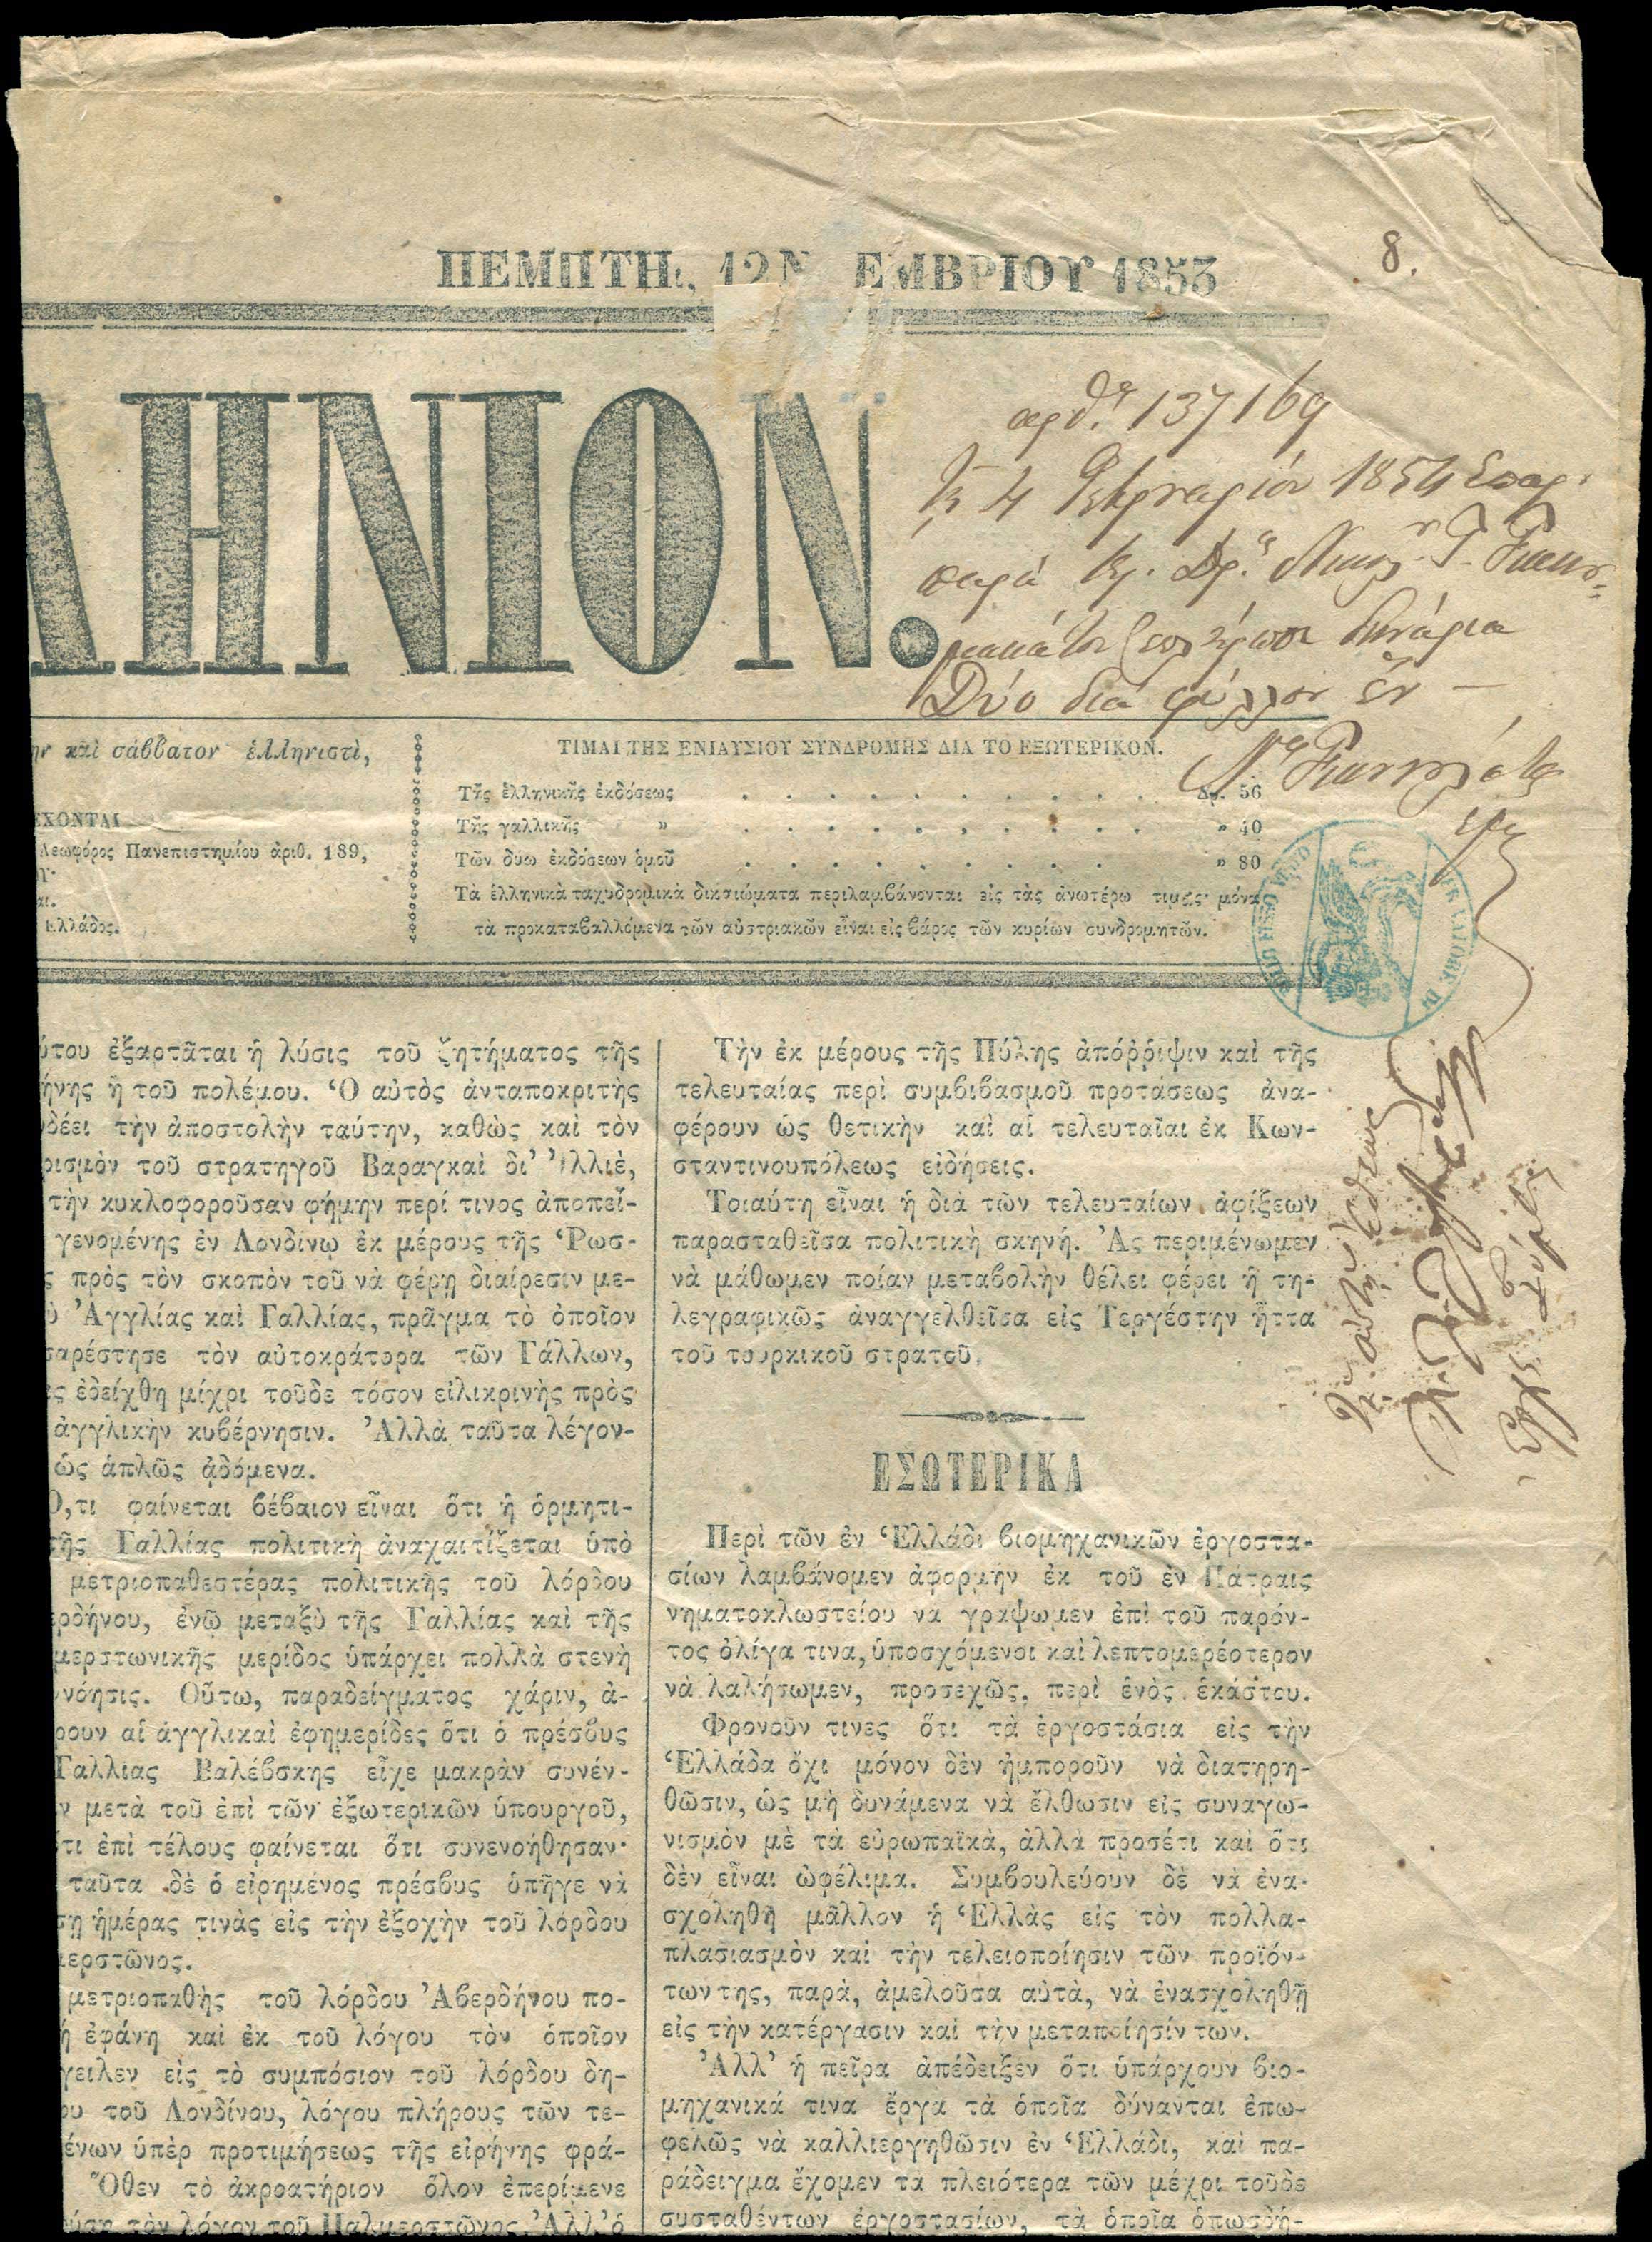 ΠΕΜΠΤΗ, 12 Ν ΕΜΒΡΙΟΥ 1853
8.
ΛΗΝΙΟΝ.
ἀρθ. 137169
4 Φεβρουαρίου 1854
παρὰ
Δύο διὰ φύλλον ἓν —
καὶ σάββατον ἑλληνιστὶ,
ΧΟΝΤΑΙ
Λεωφόρος Πανεπιστημίου ἀριθ. 189,
Ἑλλάδος.
ΤΙΜΑΙ ΤΗΣ ΕΝΙΑΥΣΙΟΥ ΣΥΝΔΡΟΜΗΣ ΔΙΑ ΤΟ ΕΞΩΤΕΡΙΚΟΝ.
Τῆς ἑλληνικῆς ἐκδόσεως . . . . . . . . . . Δρ. 56
Τῆς γαλλικῆς » . . . . . . . . . . » 40
Τῶν δύω ἐκδόσεων ὁμοῦ . . . . . . . . . » 80
Τὰ ἑλληνικὰ ταχυδρομικὰ δικαιώματα περιλαμβάνονται εἰς τὰς ἀνωτέρω τιμάς· μόνα
τὰ προκαταβαλλόμενα τῶν αὐστριακῶν εἶναι εἰς βάρος τῶν κυρίων συνδρομητῶν.
ύτου ἐξαρτᾶται ἡ λύσις τοῦ ζητήματος τῆς
ήνης ἢ τοῦ πολέμου. Ὁ αὐτὸς ἀνταποκριτὴς
δέει τὴν ἀποστολὴν ταύτην, καθὼς καὶ τὸν
ρισμὸν τοῦ στρατηγοῦ Βαραγκαὶ δι' Ἰλλιὲ,
τὴν κυκλοφοροῦσαν φήμην περί τινος ἀποπεί-
γενομένης ἐν Λονδίνῳ ἐκ μέρους τῆς Ῥωσ-
ς πρὸς τὸν σκοπὸν τοῦ νὰ φέρῃ διαίρεσιν με-
ὺ Ἀγγλίας καὶ Γαλλίας, πρᾶγμα τὸ ὁποῖον
σαρέστησε τὸν αὐτοκράτορα τῶν Γάλλων,
ς ἐδείχθη μίχρι τοῦδε τόσον εἰλικρινὴς πρὸς
ἀγγλικὴν κυβέρνησιν. Ἀλλὰ ταῦτα λέγον-
ὡς ἁπλῶς ᾀδόμενα.
Ὅ,τι φαίνεται βέβαιον εἶναι ὅτι ἡ ὁρμητι-
τῆς Γαλλίας πολιτικὴ ἀναχαιτίζεται ὑπὸ
μετριοπαθεστέρας πολιτικῆς τοῦ λόρδου
ερδήνου, ἐνῷ μεταξὺ τῆς Γαλλίας καὶ τῆς
μερστωνικῆς μερίδος ὑπάρχει πολλὰ στενὴ
νόησις. Οὕτω, παραδείγματος χάριν, ἀ-
ρουν αἱ ἀγγλικαὶ ἐφημερίδες ὅτι ὁ πρέσβυς
Γαλλίας Βαλέβσκης εἶχε μακρὰν συνέν-
ν μετὰ τοῦ ἐπὶ τῶν ἐξωτερικῶν ὑπουργοῦ,
τι ἐπὶ τέλους φαίνεται ὅτι συνενοήθησαν·
ταῦτα δὲ ὁ εἰρημένος πρέσβυς ὑπῆγε νὰ
σῃ ἡμέρας τινὰς εἰς τὴν ἐξοχὴν τοῦ λόρδου
μερστῶνος.
μετριοπαθὴς τοῦ λόρδου Ἀβερδήνου πο-
ὴ ἐφάνη καὶ ἐκ τοῦ λόγου τὸν ὁποῖον
γειλεν εἰς τὸ συμπόσιον τοῦ λόρδου δη-
ου τοῦ Λονδίνου, λόγου πλήρους τῶν τε-
ένων ὑπὲρ προτιμήσεως τῆς εἰρήνης φρά-
Ὅθεν τὸ ἀκροατήριον ὅλον ἐπερίμενε
ύσῃ τὸν λόγον τοῦ Παλμερστῶνος. Ἀλλ' ὁ
Τὴν ἐκ μέρους τῆς Πύλης ἀπόῤῥιψιν καὶ τῆς
τελευταίας περὶ συμβιβασμοῦ προτάσεως ἀνα-
φέρουν ὡς θετικὴν καὶ αἱ τελευταῖαι ἐκ Κων-
σταντινουπόλεως εἰδήσεις.
Τοιαύτη εἶναι ἡ διὰ τῶν τελευταίων ἀφίξεων
παρασταθεῖσα πολιτικὴ σκηνή. Ἂς περιμένωμεν
νὰ μάθωμεν ποίαν μεταβολὴν θέλει φέρει ἡ τη-
λεγραφικῶς ἀναγγελθεῖσα εἰς Τεργέστην ἧττα
τοῦ τουρκικοῦ στρατοῦ.
ΕΣΩΤΕΡΙΚΑ
Περὶ τῶν ἐν Ἑλλάδι βιομηχανικῶν ἐργοστα-
σίων λαμβάνομεν ἀφορμὴν ἐκ τοῦ ἐν Πάτραις
νηματοκλωστείου να γράψωμεν ἐπὶ τοῦ παρόν-
τος ὀλίγα τινα, ὑποσχόμενοι καὶ λεπτομερέστερον
νὰ λαλήσωμεν, προσεχῶς, περὶ ἑνὸς ἑκάστου.
Φρονοῦν τινες ὅτι τὰ ἐργοστάσια εἰς τὴν
Ἑλλάδα ὄχι μόνον δὲν ἠμποροῦν νὰ διατηρη-
θῶσιν, ὡς μὴ δυνάμενα νὰ ἔλθωσιν εἰς συναγω-
νισμὸν μὲ τὰ εὐρωπαϊκὰ, ἀλλὰ προσέτι καὶ ὅτι
δὲν εἶναι ὠφέλιμα. Συμβουλεύουν δὲ νὰ ἐνα-
σχοληθῇ μᾶλλον ἡ Ἑλλὰς εἰς τὸν πολλα-
πλασιασμὸν καὶ τὴν τελειοποίησιν τῶν προϊόν-
των της, παρὰ, ἀμελοῦσα αὐτὰ, νὰ ἐνασχοληθῇ
εἰς τὴν κατέργασιν καὶ τὴν μεταποίησίν των.
Ἀλλ' ἡ πεῖρα ἀπέδειξεν ὅτι ὑπάρχουν βιο-
μηχανικά τινα ἔργα τὰ ὁποῖα δύνανται ἐπω-
φελῶς νὰ καλλιεργηθῶσιν ἐν Ἑλλάδι, καὶ πα-
ράδειγμα ἔχομεν τὰ πλειότερα τῶν μέχρι τοῦδε
συσταθέντων ἐργοστασίων, τὰ ὁποῖα ὁπωσδή-